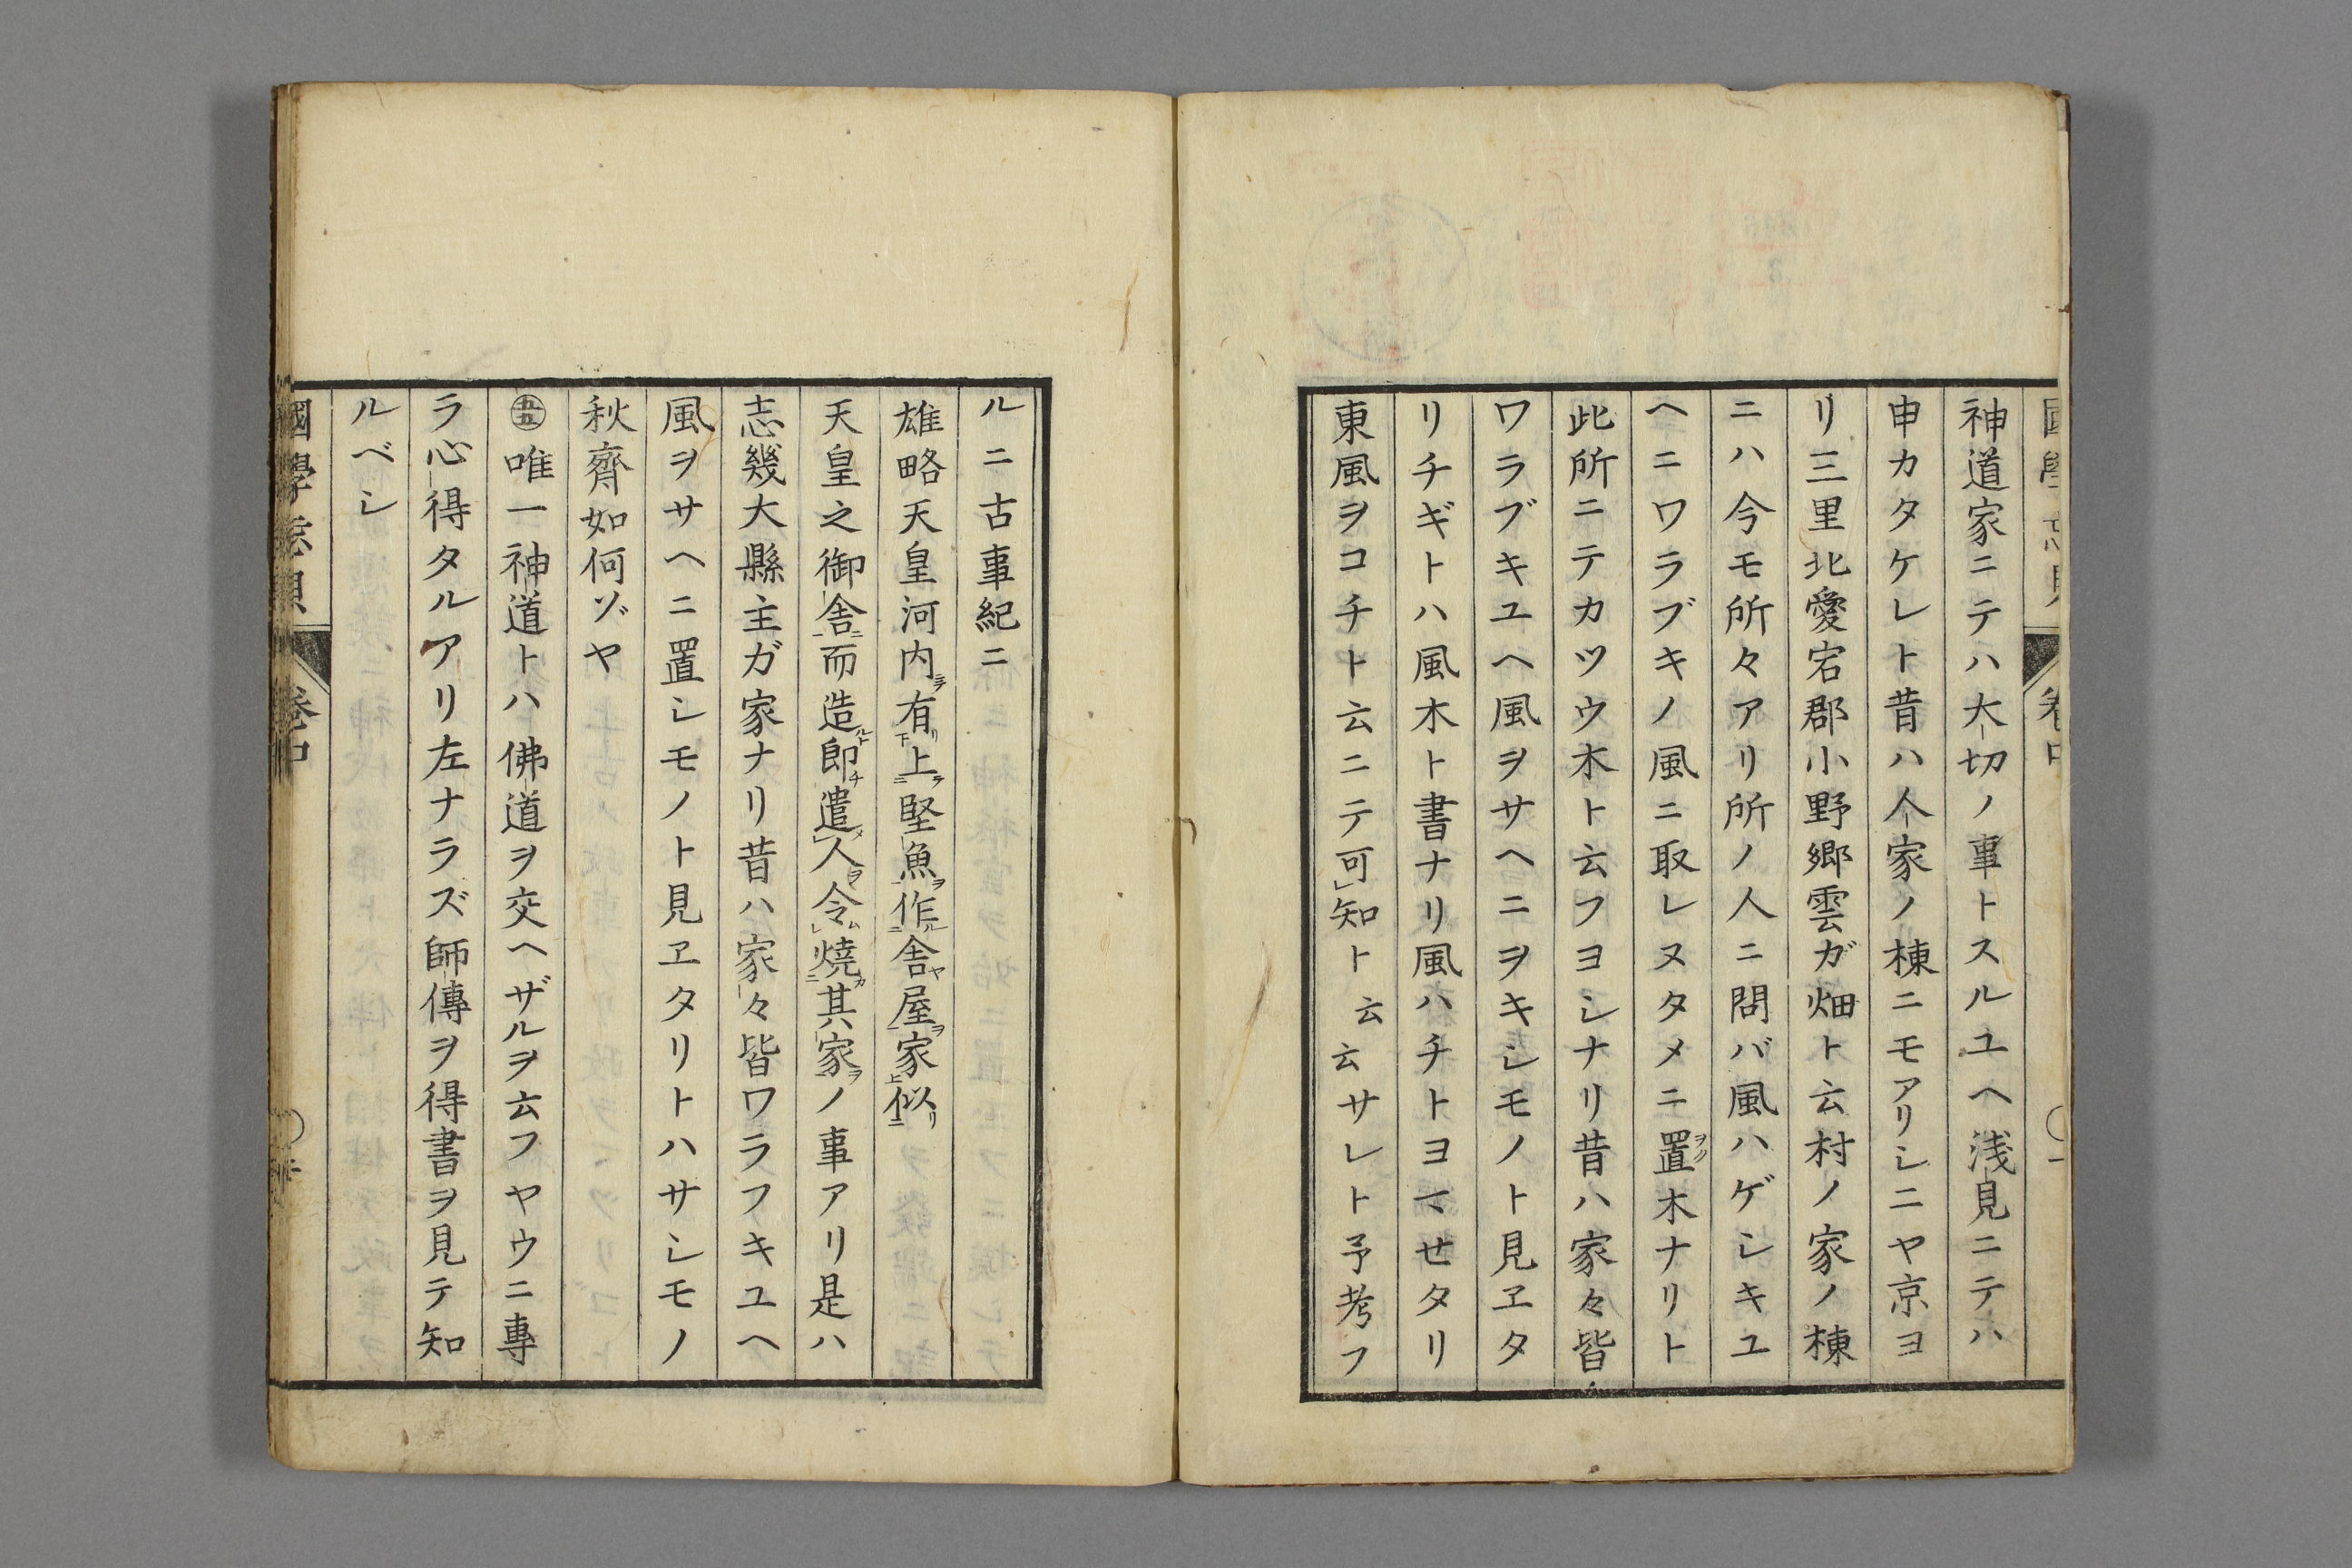 神道家ニテハ大切ノ事トスルユヘ浅見ニテハ
申カタケレト昔ハ人家ノ棟ニモアリシニヤ京ヨ
リ三里北愛宕郡小野郷雲ガ畑ト云村ノ家ノ棟
ニハ今モ所々アリ所ノ人ニ問バ風ハゲシキユ
ヘニワラブキノ風ニ取レヌタメニ置木ナリト
此所ニテカツウ木ト云フヨシナリ昔ハ家々皆
ワラブキユヘ風ヲサヘニヲキシモノト見ヱタ
リチギトハ風木ト書ナリ風ハチトヨマセタリ
東風ヲコチト云ニテ可知ト云云サレト予考フ
ルニ古事紀ニ
雄略天皇河内有上堅魚作舍屋家似
天皇之御舍而造即遣人令燒其家ノ事アリ是ハ
志幾大縣主ガ家ナリ昔ハ家々皆ワラフキユヘ
風ヲサヘニ置シモノト見ヱタリトハサシモノ
秋齊如何ゾヤ
㊄唯一神道トハ佛道ヲ交ヘザルヲ云フヤウニ專
ラ心得タルアリ左ナラズ師傳ヲ得書ヲ見テ知
ルベシ
國學忘貝
卷中